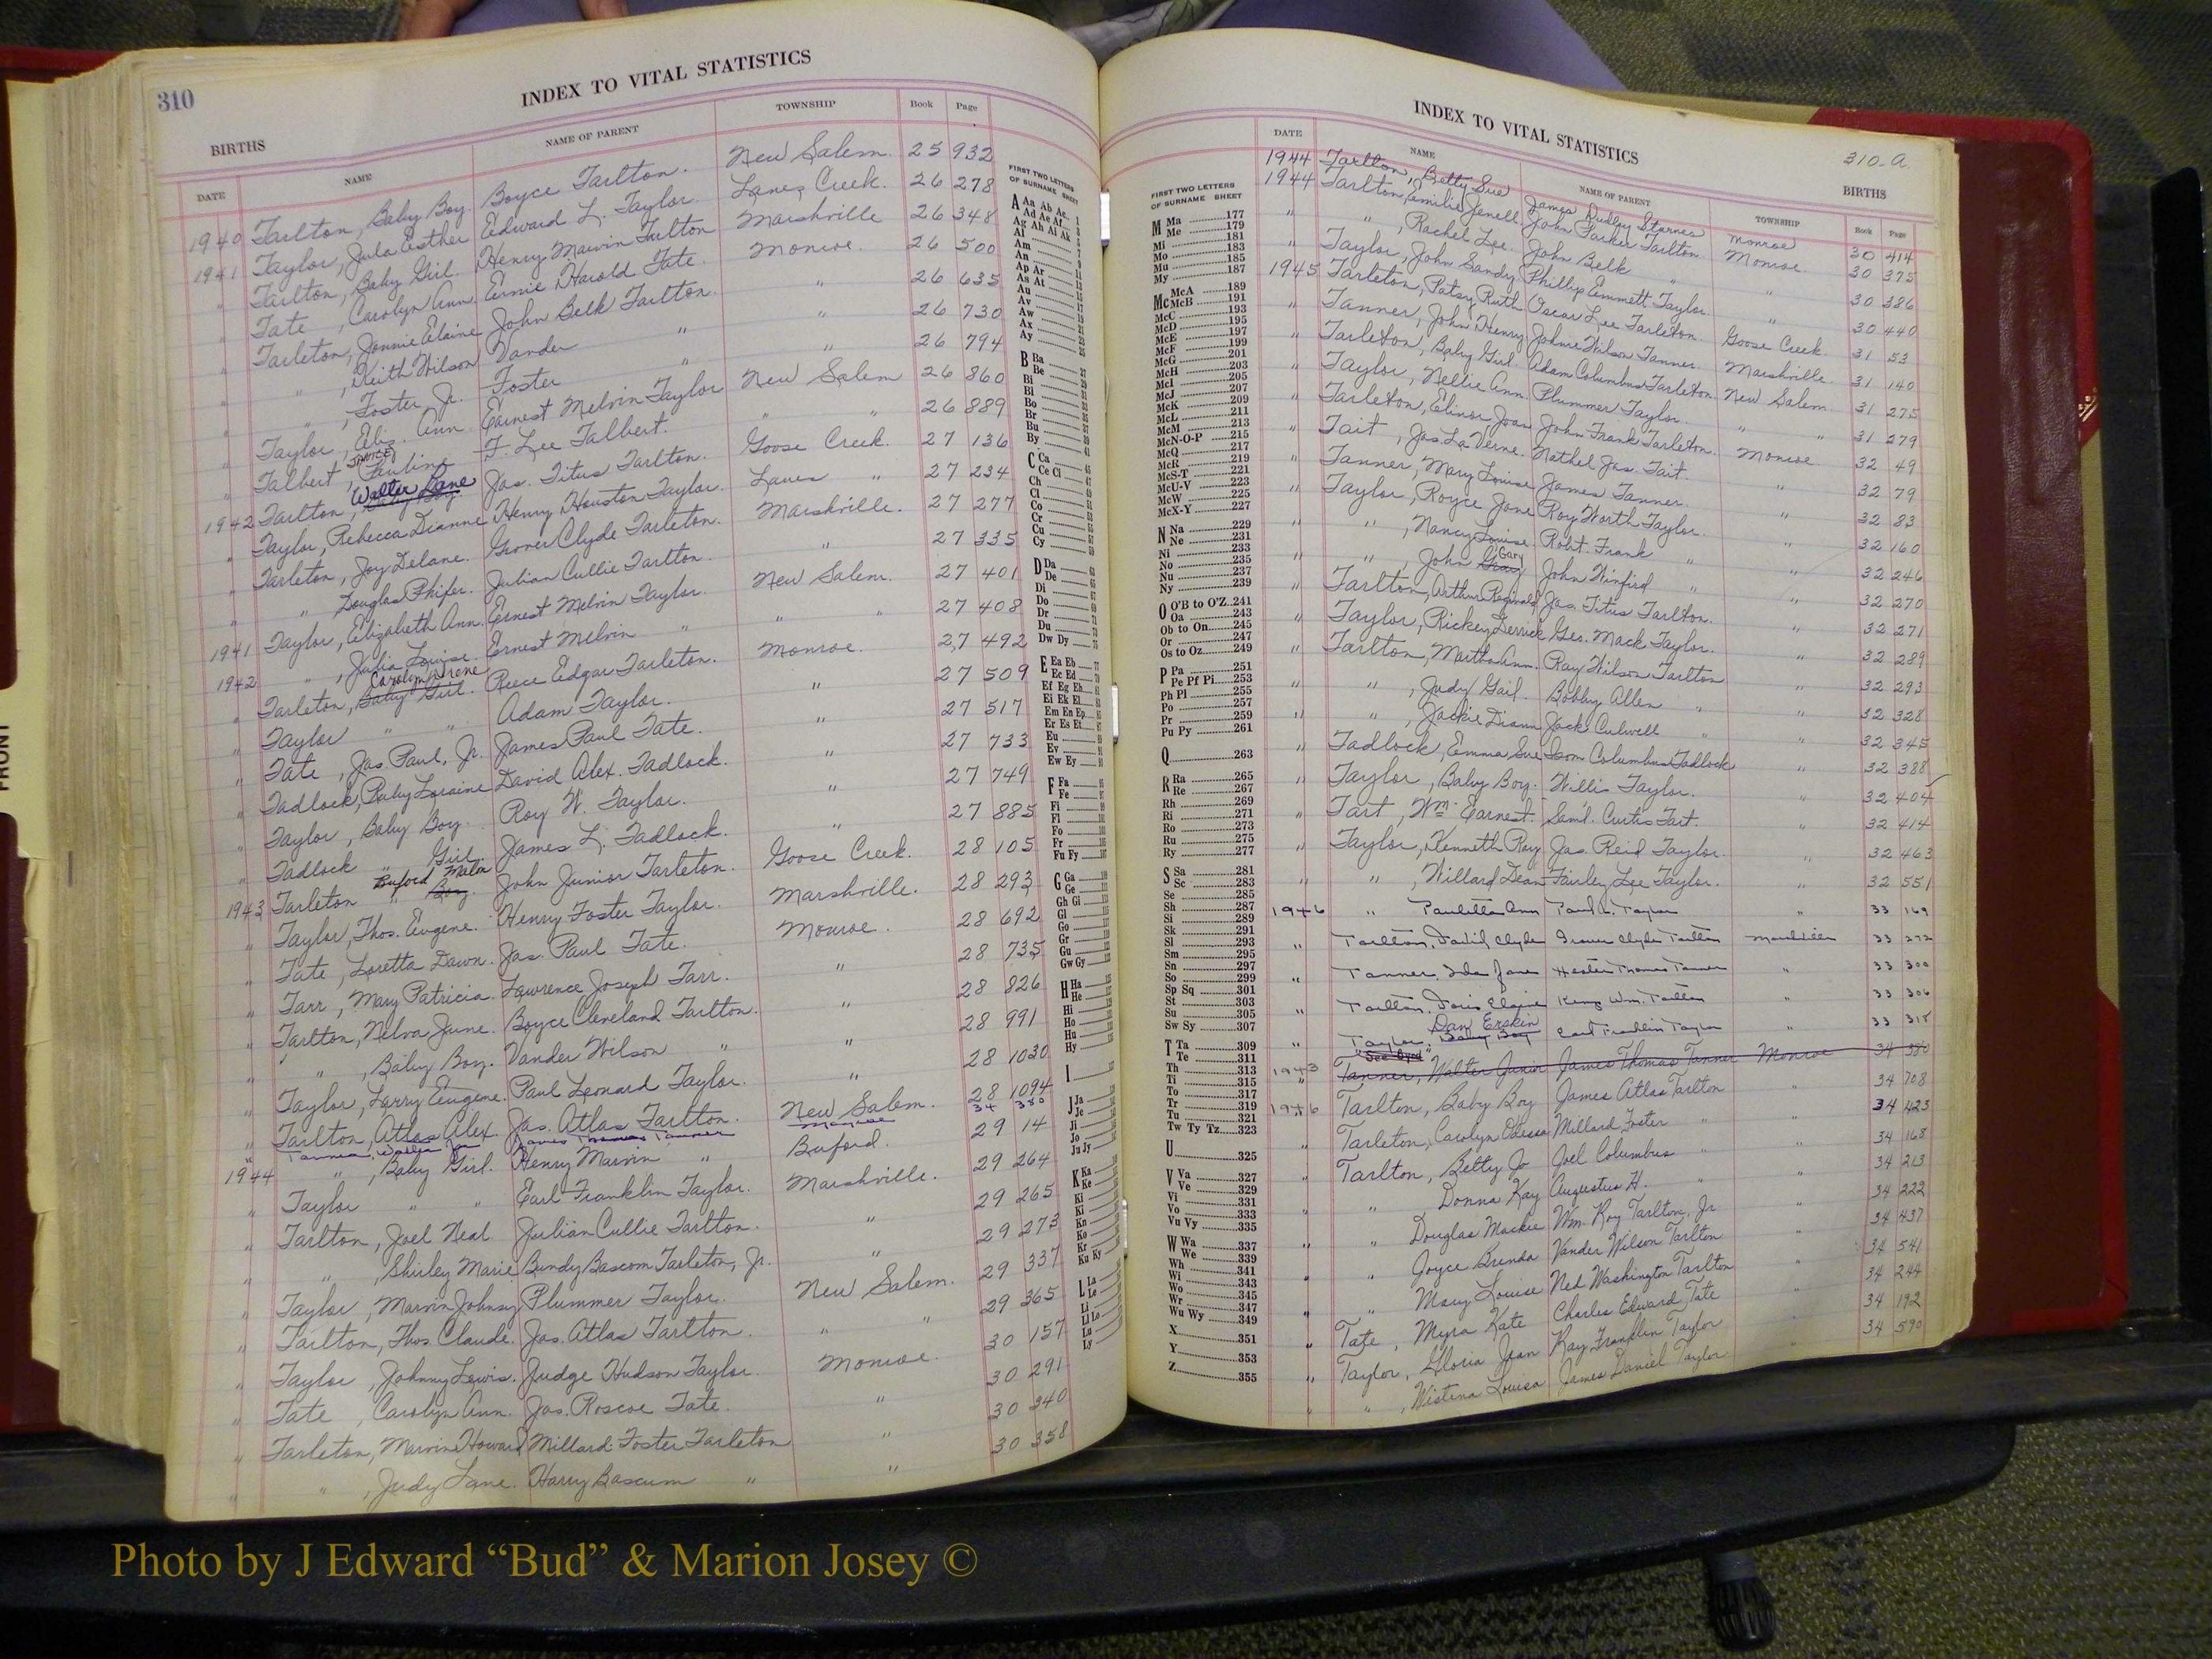 310
INDEX TO VITAL STATISTICS
BIRTHS
DATE NAME NAME OF PARENT TOWNSHIP Book Page
1940 Tarlton, Baby Boy. Boyce Tarlton. New Salem. 25 932
1941 Taylor, Jula Esther Edward L. Taylor. Lanes Creek. 26 278
" Tarlton, Baby Girl. Henry Marvin Tarlton Marshville 26 348
" Tate, Carolyn Ann. Ernie Harold Tate. Monroe. 26 500
" Tarleton, Jonnie Elaine John Belk Tarlton. " 26 635
" " , Keith Wilson Vander " " 26 730
" " , Foster Jr. Foster " " 26 794
" Taylor, Eliz. Ann. Earnest Melvin Taylor New Salem 26 860
" Talbert, Pauline F. Lee Talbert. " " 26 889
1942 Tarlton, Walter Lane Jas. Titus Tarlton. Goose Creek. 27 136
" Taylor, Rebecca Dianne Henry Houston Taylor. Lanes " 27 234
" Tarleton, Joy Delane. Grover Clyde Tarleton. Marshville. 27 277
" " Douglas Phifer. Julian Cullie Tarlton. " 27 335
1941 Taylor, Elizabeth Ann. Ernest Melvin Taylor. New Salem. 27 401
1942 " , Julia Louise. Ernest Melvin " " " 27 408
" Tarleton, Baby Girl. Carolyn Irene Reece Edgar Tarleton. Monroe. 27 492
" Taylor " " Adam Taylor. " 27 509
" Tate, Jas. Paul, Jr. James Paul Tate. " 27 517
" Tadlock, Ruby Loraine David Alex. Tadlock. " 27 733
" Taylor, Baby Boy. Roy W. Taylor. " 27 749
" Tadlock " Girl. James L. Tadlock. " 27 885
1943 Tarleton " Boy. Buford John Junior Tarleton. Goose Creek. 28 105
" Taylor, Thos. Eugene. Henry Foster Taylor. Marshville. 28 293
" Tate, Loretta Dawn. Jas. Paul Tate. Monroe. 28 692
" Tarr, Mary Patricia. Lawrence Joseph Tarr. " 28 735
" Tarlton, Nelva June. Boyce Cleveland Tarlton. " 28 826
" " , Baby Boy. Vander Wilson " " 28 991
" Taylor, Larry Eugene. Paul Leonard Taylor. " 28 1030
" Tarlton, Atlas Alex. Jas. Atlas Tarlton. New Salem. 28 1094
" Tanner, Walter Jr. James Thomas Tanner Monroe 34 380
1944 " , Baby Girl. Henry Marvin " Buford. 29 14
" Taylor " " Earl Franklin Taylor. Marshville. 29 264
" Tarlton, Joel Neal. Julian Cullie Tarlton. " 29 265
" " , Shirley Marie Bundy Bascom Tarleton, Jr. " 29 273
" Taylor, Marvin Johnsy Plummer Taylor. New Salem. 29 337
" Tarlton, Thos. Claude. Jas. Atlas Tarlton. " " 29 365
" Taylor, Johnny Lewis. Judge Hudson Taylor. Monroe. 30 157
" Tate, Carolyn Ann. Jas. Roscoe Tate. " 30 291
" Tarleton, Marvin Howard Millard Foster Tarleton " 30 340
" " , Judy Lane. Harry Bascum " " 30 358
FIRST TWO LETTERS
OF SURNAME SHEET
A Aa Ab Ac
Ad Ae Af
Ag Ah Ai Ak
Al
Am
An
Ap Ar
As At
Au
Av
Aw
Ax
Ay
B Ba
Be
Bi
Bl
Bo
Br
Bu
By
C Ca
Ce Ci
Ch
Cl
Co
Cr
Cu
Cy
D Da
De
Di
Do
Dr
Du
Dw Dy
E Ea Eb
Ec Ed
Ef Eg Eh
Ei Ek El
Em En Ep
Er Es Et
Eu
Ev
Ew Ey
F Fa
Fe
Fi
Fl
Fo
Fr
Fu Fy
G Ga
Ge
Gh Gi
Gl
Go
Gr
Gu
Gw Gy
H Ha
He
Hi
Ho
Hu
Hy
I
J Ja
Je
Ji
Jo
Ju Jy
K Ka
Ke
Ki
Kl
Kn
Ko
Kr
Ku Ky
L La
Le
Li
Ll Lo
Lu
Ly
INDEX TO VITAL STATISTICS
310-A
BIRTHS
DATE NAME NAME OF PARENT TOWNSHIP Book Page
1944 Tarlton, Betty Sue James Dudley Starnes Monroe 30 414
1944 Tarlton, Emilie Jenell John Parker Tarlton Monroe. 30 375
" " , Rachel Lee. John Belk " " 30 386
" Taylor, John Sandy. Phillip Emmett Taylor. " 30 440
1945 Tarleton, Patsy Ruth Oscar Lee Tarleton. Goose Creek. 31 53
" Tanner, John Henry Johnie Wilson Tanner. Marshville. 31 140
" Tarleton, Baby Girl. Adam Columbus Tarleton. New Salem. 31 275
" Taylor, Nellie Ann. Plummer Taylor. " " 31 279
" Tarleton, Elinor Joan John Frank Tarleton. Monroe. 32 49
" Tait, Jas. La Verne. Nathel Jas. Tait. 32 79
" Tanner, Mary Louise James Tanner. " 32 83
" Taylor, Royce Jone Roy Worth Taylor. " 32 160
" " , Nancy Louise. Robt. Frank " " 32 246
" " , John Gary John Winfird " " 32 270
" Tarlton, Arthur Reginald Jas. Titus Tarlton. " 32 271
" Taylor, Rickey Derrick Geo. Mack Taylor. " 32 289
" Tarlton, Martha Ann. Ray Wilson Tarlton " 32 293
" " , Judy Gail. Bobby Allen " " 32 328
" " , Jackie Diann Jack Culwell " " 32 345
" Tadlock, Emma Sue Columbus Tadlock " 32 388
" Taylor, Baby Boy. Willis Taylor. " 32 404
" Tart, Wm. Earnest. Saml. Curtis Tart. " 32 414
" Taylor, Kenneth Ray Jas. Reid Taylor. " 32 463
" " , Willard Dean Fairley Lee Taylor. " 32 551
1946 " Pauletta Ann Paul L. Taylor " 33 169
" Tarlton, David Clyde Grover Clyde Tarlton Marshville 33 272
" Tanner, Ida Jane Hester Thomas Tanner " 33 300
" Tarlton, Doris Elaine King Wm. Tarlton " 33 306
" Taylor, Baby Boy Dan Erskin Earl Franklin Taylor " 33 315
1943 Tanner, Walter Junior James Thomas Tanner Monroe 34 380
1946 Tarlton, Baby Boy James Atlas Tarlton " 34 708
" Tarleton, Carolyn Odessa Millard Foster " " 34 423
" Tarlton, Betty Jo Joel Columbus " " 34 168
" " Donna Kay Augustus H. " " 34 213
" " Douglas Mackie Wm. Roy Tarlton, Jr. " 34 222
" " Joyce Brenda Vander Wilson Tarlton " 34 437
" " Mary Louise Ned Washington Tarlton " 34 541
" Tate, Myra Kate Charles Edward Tate " 34 244
" Taylor, Gloria Jean Ray Franklin Taylor " 34 192
" " , Louisa James Daniel Taylor " 34 590
FIRST TWO LETTERS
OF SURNAME SHEET
M Ma 177
Me 179
Mi 181
Mo 183
Mu 185
My 187
Mc McA 189
McB 191
McC 193
McD 195
McE 197
McF 199
McG 201
McH 203
McI 205
McJ 207
McK 209
McL 211
McM 213
McN-O-P 215
McQ 217
McR 219
McS-T 221
McU-V 223
McW 225
McX-Y 227
N Na 229
Ne 231
Ni 233
No 235
Nu 237
Ny 239
O O'B to O'Z 241
Oa 243
Ob to On 245
Or 247
Os to Oz 249
P Pa 251
Pe Pf Pi 253
Ph Pl 255
Po 257
Pr 259
Pu Py 261
Q 263
R Ra 265
Re 267
Rh 269
Ri 271
Ro 273
Ru 275
Ry 277
S Sa 281
Sc 283
Se 285
Sh 287
Si 289
Sk 291
Sl 293
Sm 295
Sn 297
So 299
Sp Sq 301
St 303
Su 305
Sw Sy 307
T Ta 309
Te 311
Th 313
Ti 315
To 317
Tr 319
Tu 321
Tw Ty Tz 323
U 325
V Va 327
Ve 329
Vi 331
Vo 333
Vu Vy 335
W Wa 337
We 339
Wh 341
Wi 343
Wo 345
Wr 347
Wu Wy 349
X 351
Y 353
Z 355
FRONT
Photo by J Edward “Bud” & Marion Josey ©